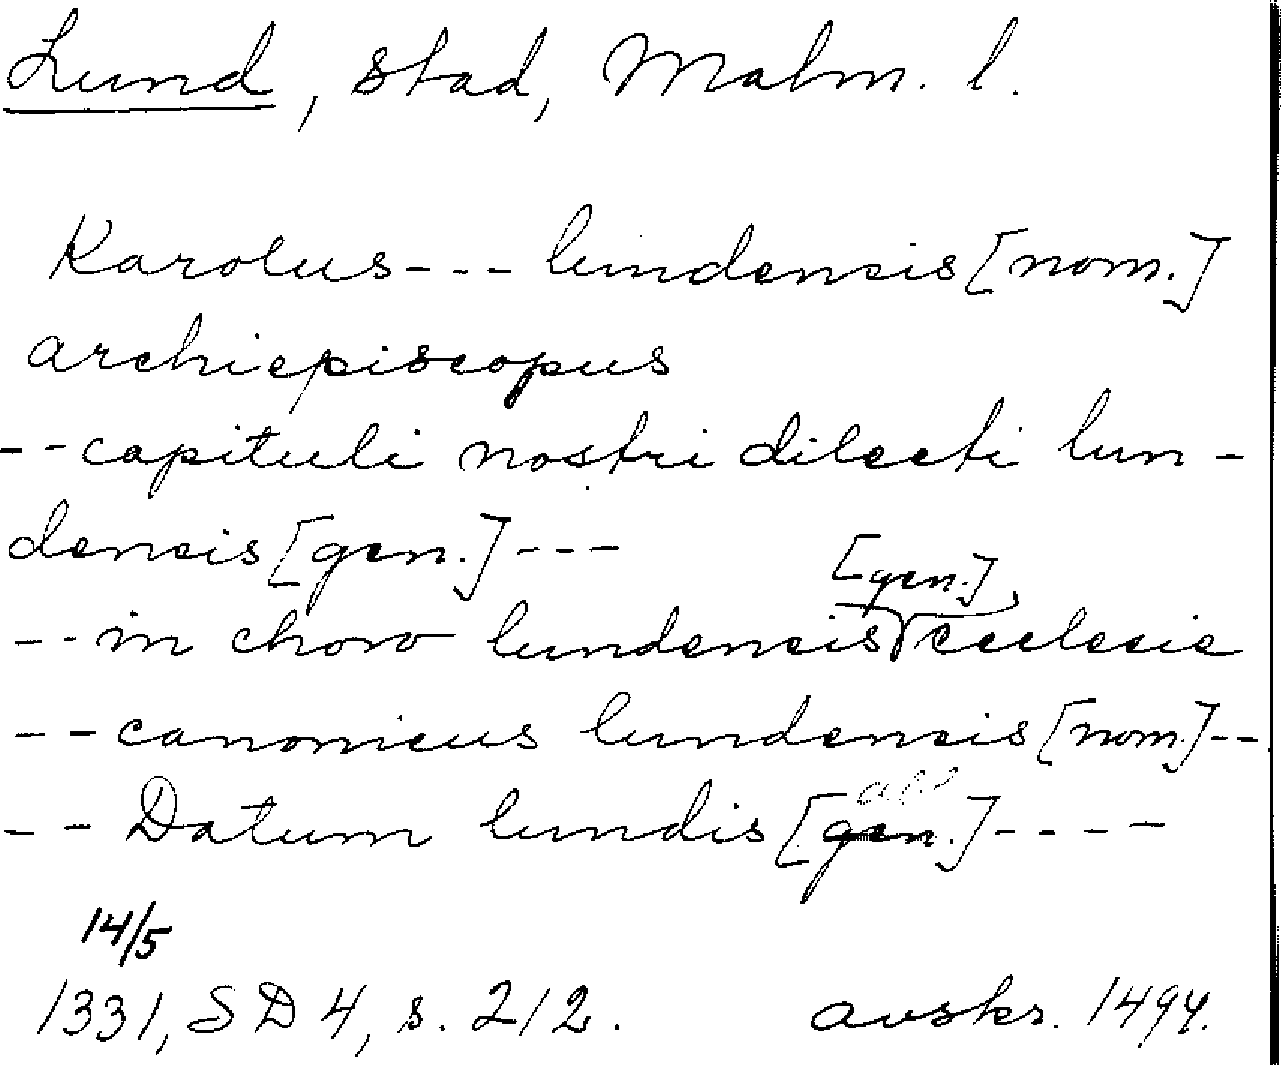 Lund, stad, Malm. l.
Karolus --- lundensis [nom.]
archiepiscopus
-- capituli nostri dilecti lun-
densis [gen.] ---
-- in choro lundensis [gen.] ecclesie
-- canonicus lundensis [nom.] --
-- Datum lundis [gen.] ----
abl
14/5
1331, SD 4, s. 212. avskr. 1494.